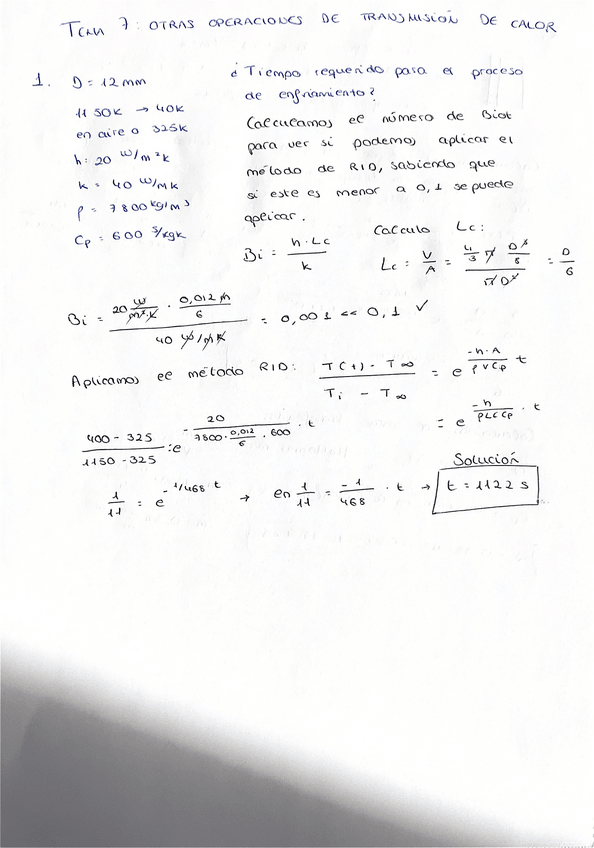 TEMA 7: OTRAS OPERACIONES DE TRANSMISIÓN DE CALOR
1. D = 12 mm
1150K → 40K
en aire a 325K
h: 20 W/m²K
K = 40 W/mK
ρ = 7800 kg/m³
Cp = 600 J/kgK
¿Tiempo requerido para el proceso
de enfriamiento?
Calculamos el número de Biot
para ver si podemos aplicar el
método de RID, sabiendo que
si este es menor a 0,1 se puede
aplicar.
Calculo Lc:
Bi = h·Lc / k
Lc = V/A = 4/3 π D³/8 / π D² = D/6
Bi = 20 W/m²·K · 0,012 m/6 / 40 W/mK = 0,001 << 0,1 ✓
Aplicamos el método RID: T(t) - T∞ / Ti - T∞ = e^(-h·A/ρVCp t)
= e^(-h/ρLcCp · t)
400 - 325 / 1150 - 325 = e^(-20/7800·0,012/6·600 · t)
Solución
1/11 = e^(-1/468 t) → en 1/11 = -1/468 · t → t = 1122 s